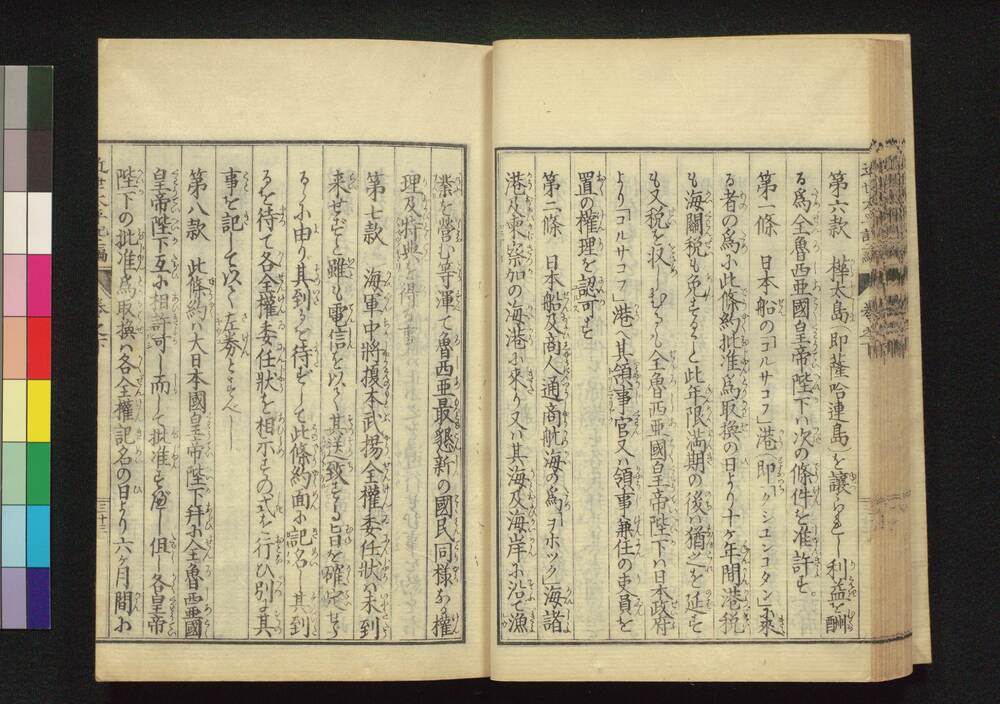 第六款 樺太島(即薩哈連島)を讓られし利益を酬
る爲全魯西亞國皇帝陛下ハ次の條件を准許す。
第一條 日本船の「コルサコフ」港(即「クシユンコタン」)に來
る者の爲に此條約批准爲取換の日より十ヶ年間港税
も海關税も免ずるし此年限滿期の後ハ猶之を延す
も又税を收しむるも全魯西亞國皇帝陛下ハ日本政府
より「コルサコフ」港へ其領事官又ハ領事兼任の吏員を
置の權理を認可す
第二條 日本船及商人通商航海の爲「ヲホツク」海諸
港及柬察加の海港に來り又ハ其海及海岸に沿て漁
業を營む等渾て魯西亞最懇親の國民同樣なる權
理及特典を得る事
第七款 海軍中將榎本武揚全權委任狀ハ未到
來せずと雖も電信を以て其送致する旨を確定せら
るゝに由り其到るを待ずして此條約面に記名し其到
るを待て各全權委任狀を相示すの式を行ひ別に其
事を記して以て左劵とすべし
第八款 此條約ハ大日本國皇帝陛下幷に全魯西亞國
皇帝陛下互に相許可し而して批准すべし但し各皇帝
陛下の批准爲取換ハ各全權記名の日より六ヶ月間に
近世太平記二編 卷之六 三十三